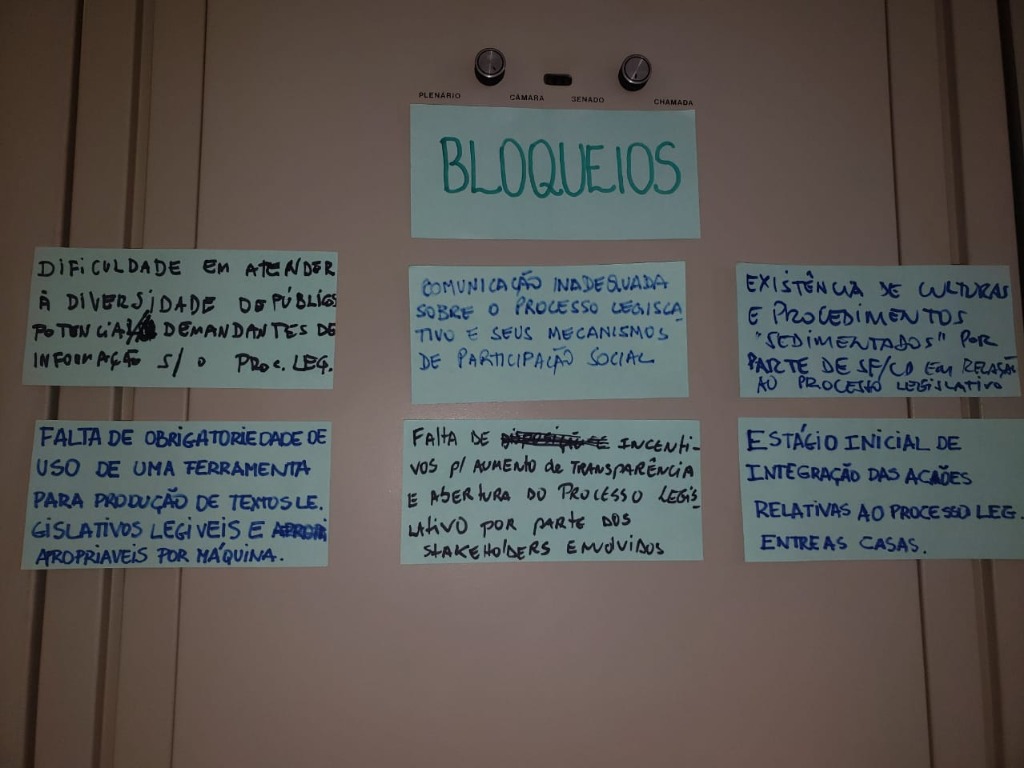 PLENÁRIO CÂMARA SENADO CHAMADA
BLOQUEIOS
DIFICULDADE EM ATENDER
À DIVERSIDADE DE PÚBLICOS
POTENCIAIS DEMANDANTES DE
INFORMAÇÃO S/ O PROC. LEG.
COMUNICAÇÃO INADEQUADA
SOBRE O PROCESSO LEGISLA-
TIVO E SEUS MECANISMOS
DE PARTICIPAÇÃO SOCIAL
EXISTÊNCIA DE CULTURAS
E PROCEDIMENTOS
"SEDIMENTADOS" POR
PARTE DE SF/CD EM RELAÇÃO
AO PROCESSO LEGISLATIVO
FALTA DE OBRIGATORIEDADE DE
USO DE UMA FERRAMENTA
PARA PRODUÇÃO DE TEXTOS LE.
GISLATIVOS LEGIVEIS E
APROPRIAVEIS POR MÁQUINA.
FALTA DE INCENTI-
VOS P/ AUMENTO de TRANSPARÊNCIA
E ABERTURA DO PROCESSO LEGIS
LATIVO POR PARTE DOS
STAKEHOLDERS ENVOLVIDOS
ESTÁGIO INICIAL DE
INTEGRAÇÃO DAS ACÕES
RELATIVAS AO PROCESSO LEG.
ENTRE AS CASAS.